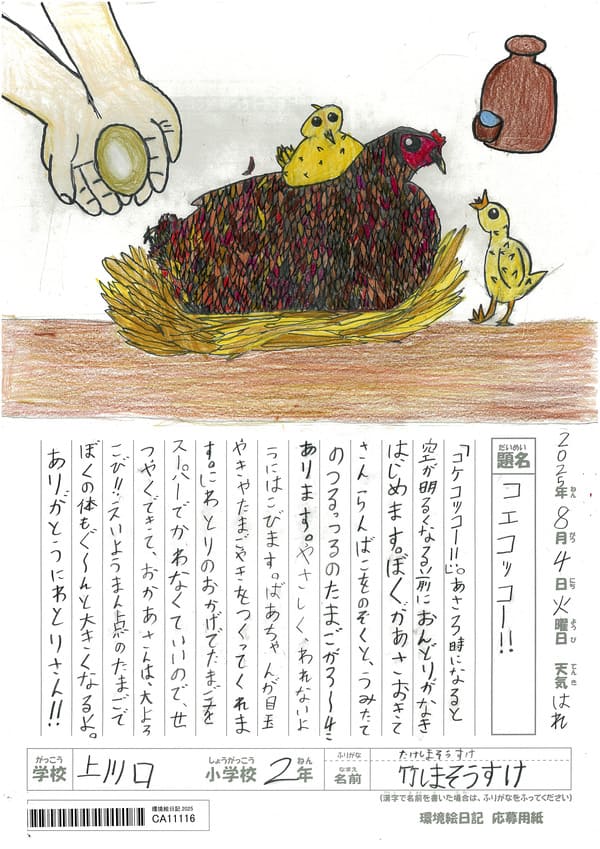 2025年 8月 4日 火曜日 天気 はれ
ねん がつ にち ようび てんき
だいめい
題名 コエコッコー!!
「コケコッコー!!」。あさ3時になると
空が明るくなる前におんどりがなき
はじめます。ぼくがあさおきて
さんらんばこをのぞくと、うみたて
のつるっつるのたまごが3〜4こ
あります。やさしく、われないよ
うにはこびます。ばあちゃんが目玉
やきやたまごやきをつくってくれま
す。にわとりのおかげでたまごを
スーパーでかわなくていいので、せ
つやくできて、おかあさんは、大よろ
こび!!えいようまん点のたまごで
ぼくの体もぐ〜んと大きくなるよ。
ありがとうにわとりさん!!
がっこう しょうがっこう ねん ふりがな たけしまそうすけ
学校 上川口 小学校 2年 なまえ 名前 竹しまそうすけ
(漢字で名前を書いた場合は、ふりがなをふってください)
環境絵日記 応募用紙
環境絵日記 2025
CA11116